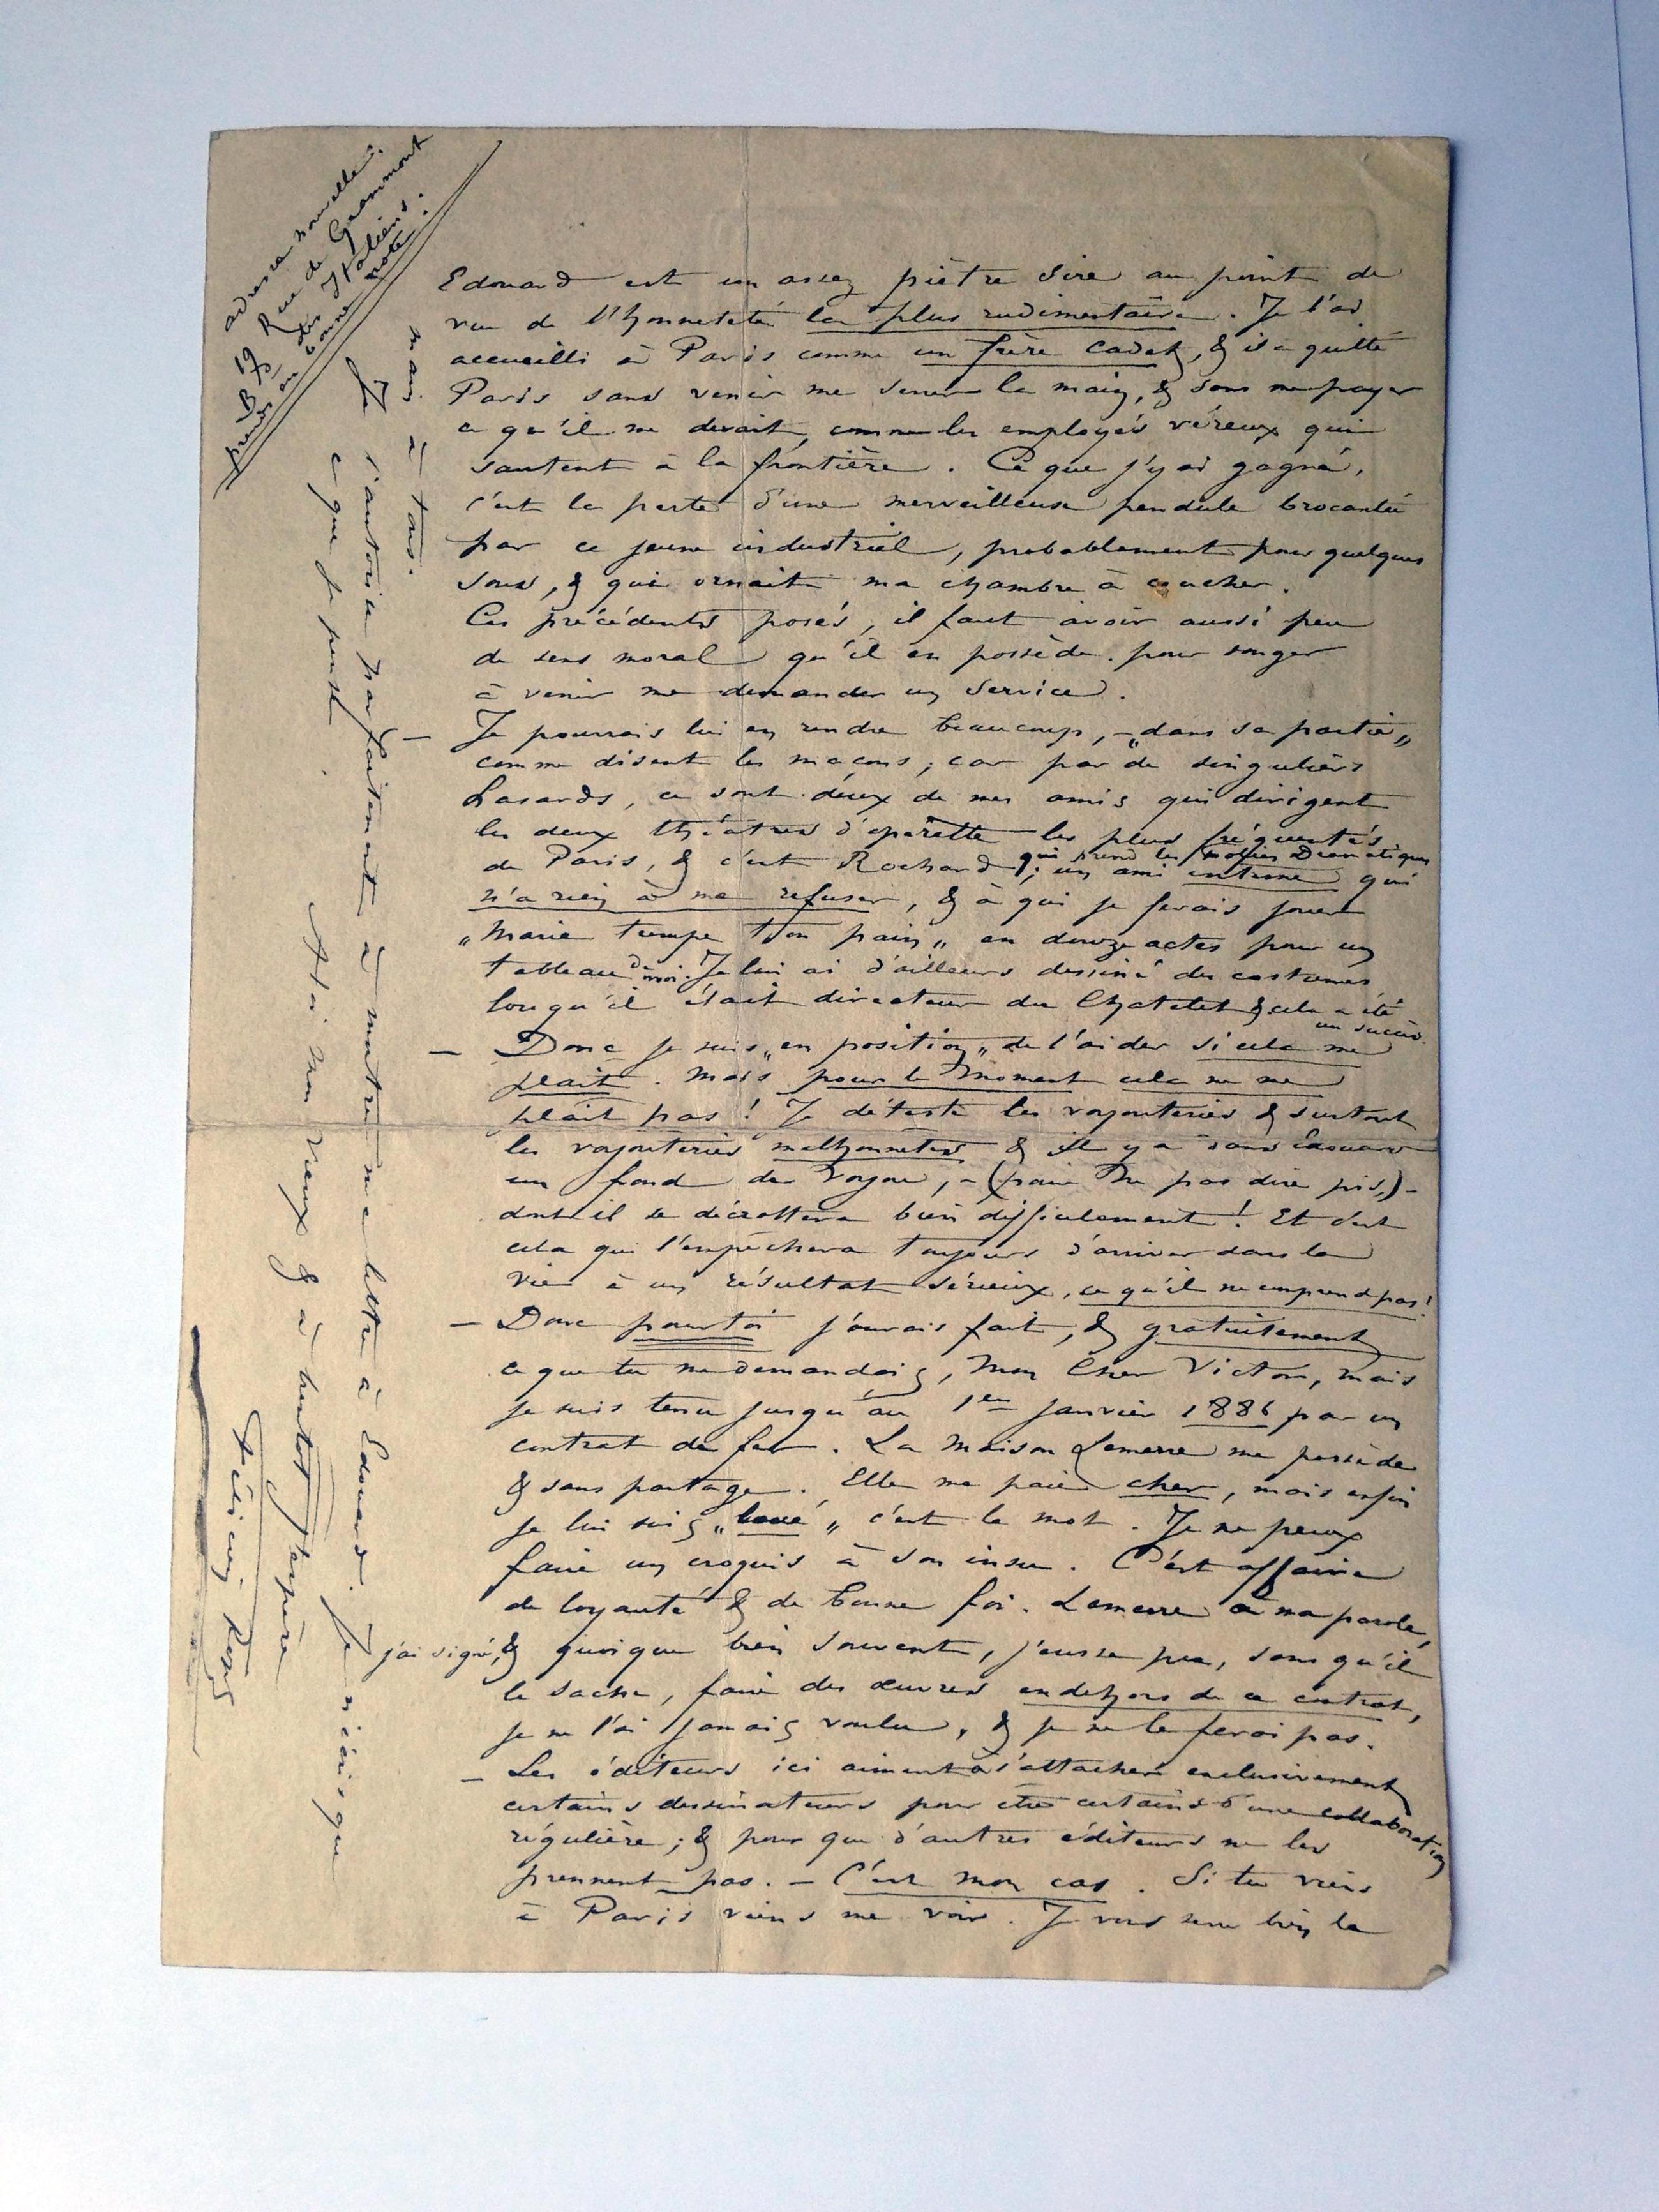 adresse nouvelle:
19 Rue de Grammont
Bd des Italiens.
prends en bonne note.
Edouard est un assez piètre Sire au point de
vue de l'honneteté la plus rudimentaire. Je l'ai
accueilli à Paris comme un frère cadet, & il a quitté
Paris sans venir me serrer la main, & sans me payer
ce qu'il me devait, comme les employés véreux qui
sautent à la frontière. Ce que j'y ai gagné,
c'est la perte d'une merveilleuse pendule brocantée
par ce jeune industriel, probablement pour quelques
sous, & qui ornait ma chambre à coucher.
Ces précédents posés, il faut avoir aussi peu
de sens moral qu'il en possède pour songer
à venir me demander un service.
— Je pourrais lui en rendre beaucoup, – „dans sa partie„
comme disent les maçons; car par de singuliers
hasards, ce sont deux de mes amis qui dirigent
les deux théatres d'opérette les plus fréquentés
de Paris, & c'est Rochard qui prend les Folies Dramatiques; un ami intime qui
n'a rien à me refuser, & à qui je ferais jouer
„Marie trempe ton pain„ en douze actes pour un
tableau de moi. Je lui ai d'ailleurs dessiné des costumes
lorsqu'il était directeur du Chatelet & cela a été
un succès.
— Donc je suis „en position„ de l'aider si cela me
plait. Mais pour le moment cela ne me
plait pas! Je déteste les voyouteries & surtout
les voyouteries malhonnetes & il y a dans Edouard
un fond de voyou, – (pour ne pas dire pis,) –
dont il se décrottera bien difficilement! Et c'est
cela qui l'empechera toujours d'arriver dans la
vie à un résultat sérieux, ce qu'il ne comprend pas!
— Donc pour toi j'aurais fait, & gratuitement
ce que tu me demandais, Mon Cher Victor, mais
je suis tenu jusqu'au 1er Janvier 1886 par un
contrat de fer. La Maison Lemerre me possède
& sans partage. Elle me paie cher, mais enfin
je lui suis „loué„ c'est le mot. Je ne peux
faire un croquis à son insu. C'est affaire
de loyauté & de bonne foi. Lemerre a ma parole,
j'ai signé, & quoique bien souvent, j'eusse pu, sans qu'il
le sache, faire des œuvres en dehors de ce contrat,
je ne l'ai jamais voulu, & je ne le ferai pas.
— Les éditeurs ici aiment à s'attacher exclusivement
certains dessinateurs pour être certains d'une collaboration
régulière; & pour que d'autres éditeurs ne les
prennent pas. – C'est mon cas. Si tu viens
à Paris viens me voir. Je vous serre bien la
main à tous.
Je t'autorise parfaitement à montrer ma lettre à Edouard. Je n'écris que
ce que je pense.
A toi mon vieux & à bientot j'espère
Félicien Rops